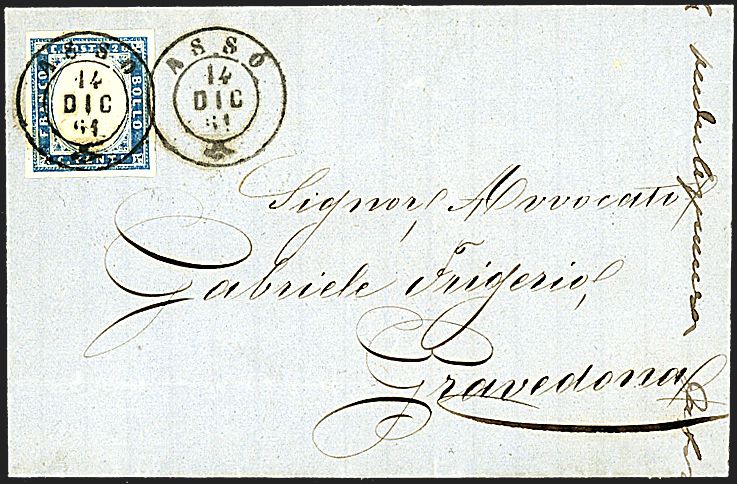 C. POST. 20
FRANCO
BOLLO
CENT. 20
ASSO
14
DIC
61
ASSO
14
DIC
61
Signor, Avvocato
Gabriele Frigerio,
Gravedona